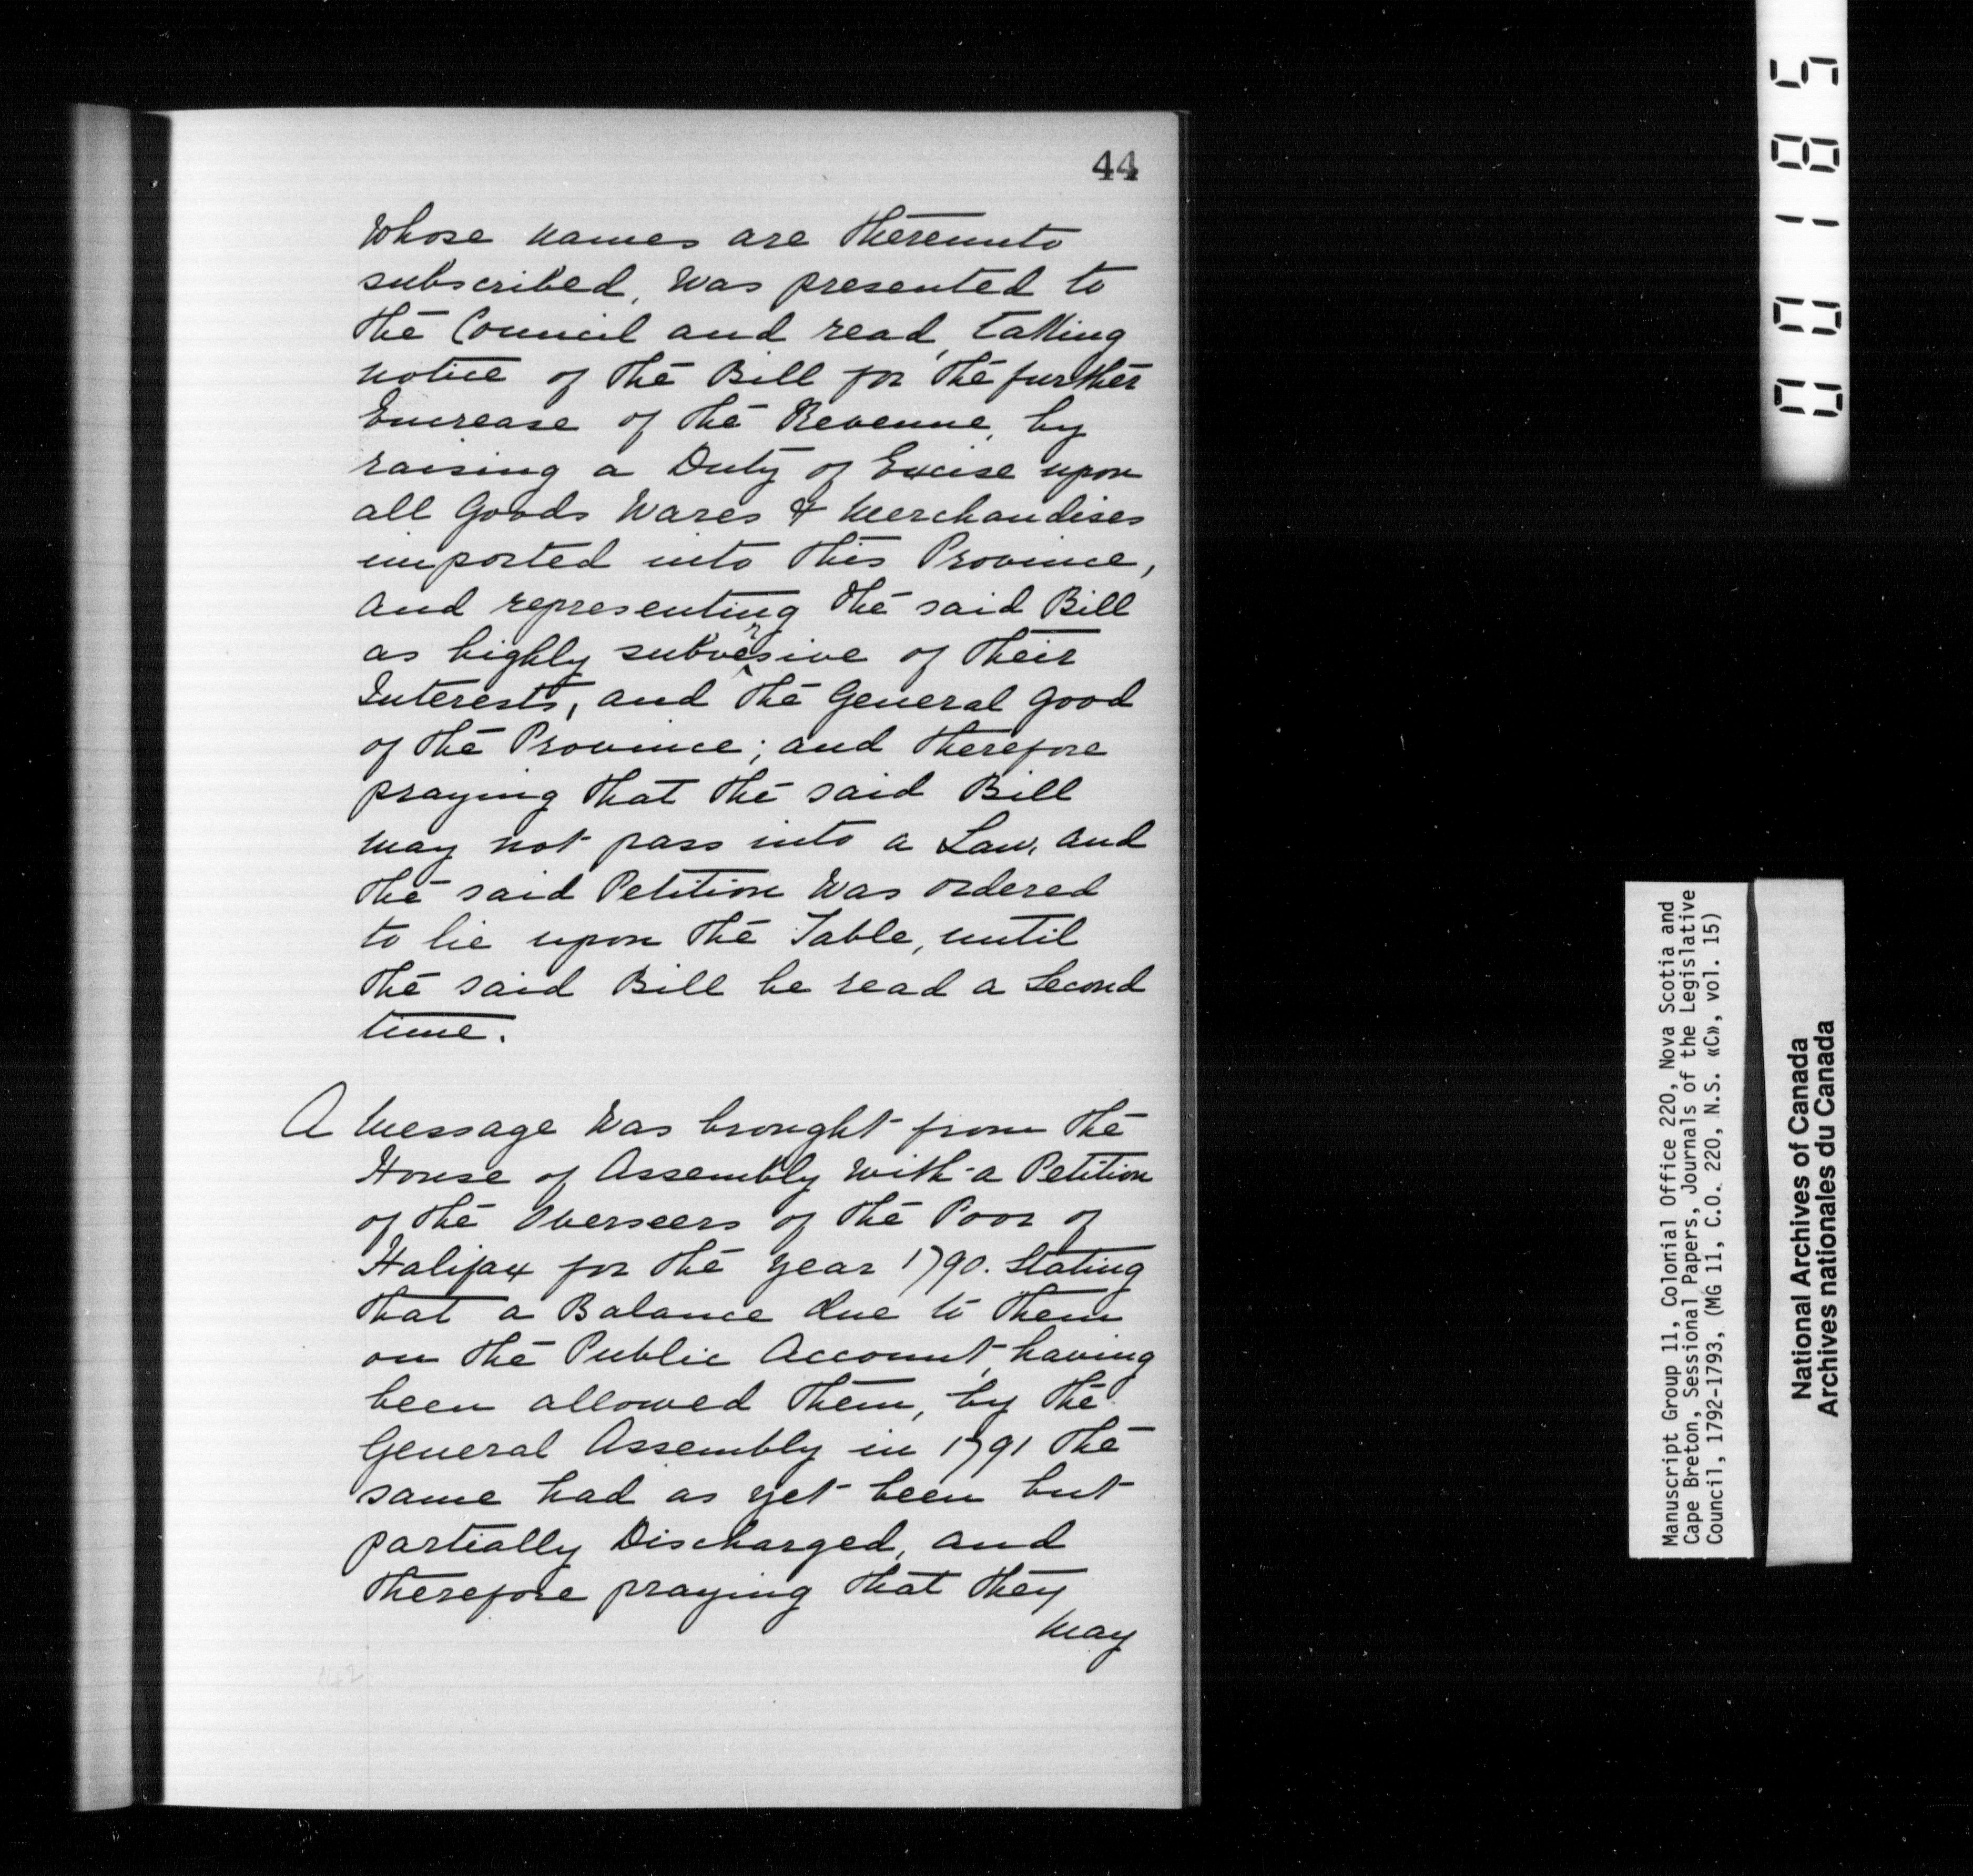 44
Whose names are thereunto
subscribed, Was presented to
the Council and read, taking
notice of the Bill for the further
Encrease of the Revenue, by
raising a Duty of Excise upon
all Goods Wares & Merchandises
imported into this Province,
and representing the said Bill
as highly subversive of their
Interests, and the General Good
of the Province; and therefore
praying that the said Bill
may not pass into a Law, and
the said Petition Was ordered
to lie upon the Table, until
the said Bill be read a Second
time.
A Message Was brought from the
House of Assembly With a Petition
of the Overseers of the Poor of
Halifax for the year 1790. Stating
that a Balance due to them
on the Public Account, having
been allowed them, by the
General Assembly in 1791 the
same had as yet been but
partially Discharged, and
therefore praying that they
may
142
00185
Manuscript Group 11, Colonial Office 220, Nova Scotia and
Cape Breton, Sessional Papers, Journals of the Legislative
Council, 1792-1793, (MG 11, C.O. 220, N.S. «C», vol. 15)
National Archives of Canada
Archives nationales du Canada